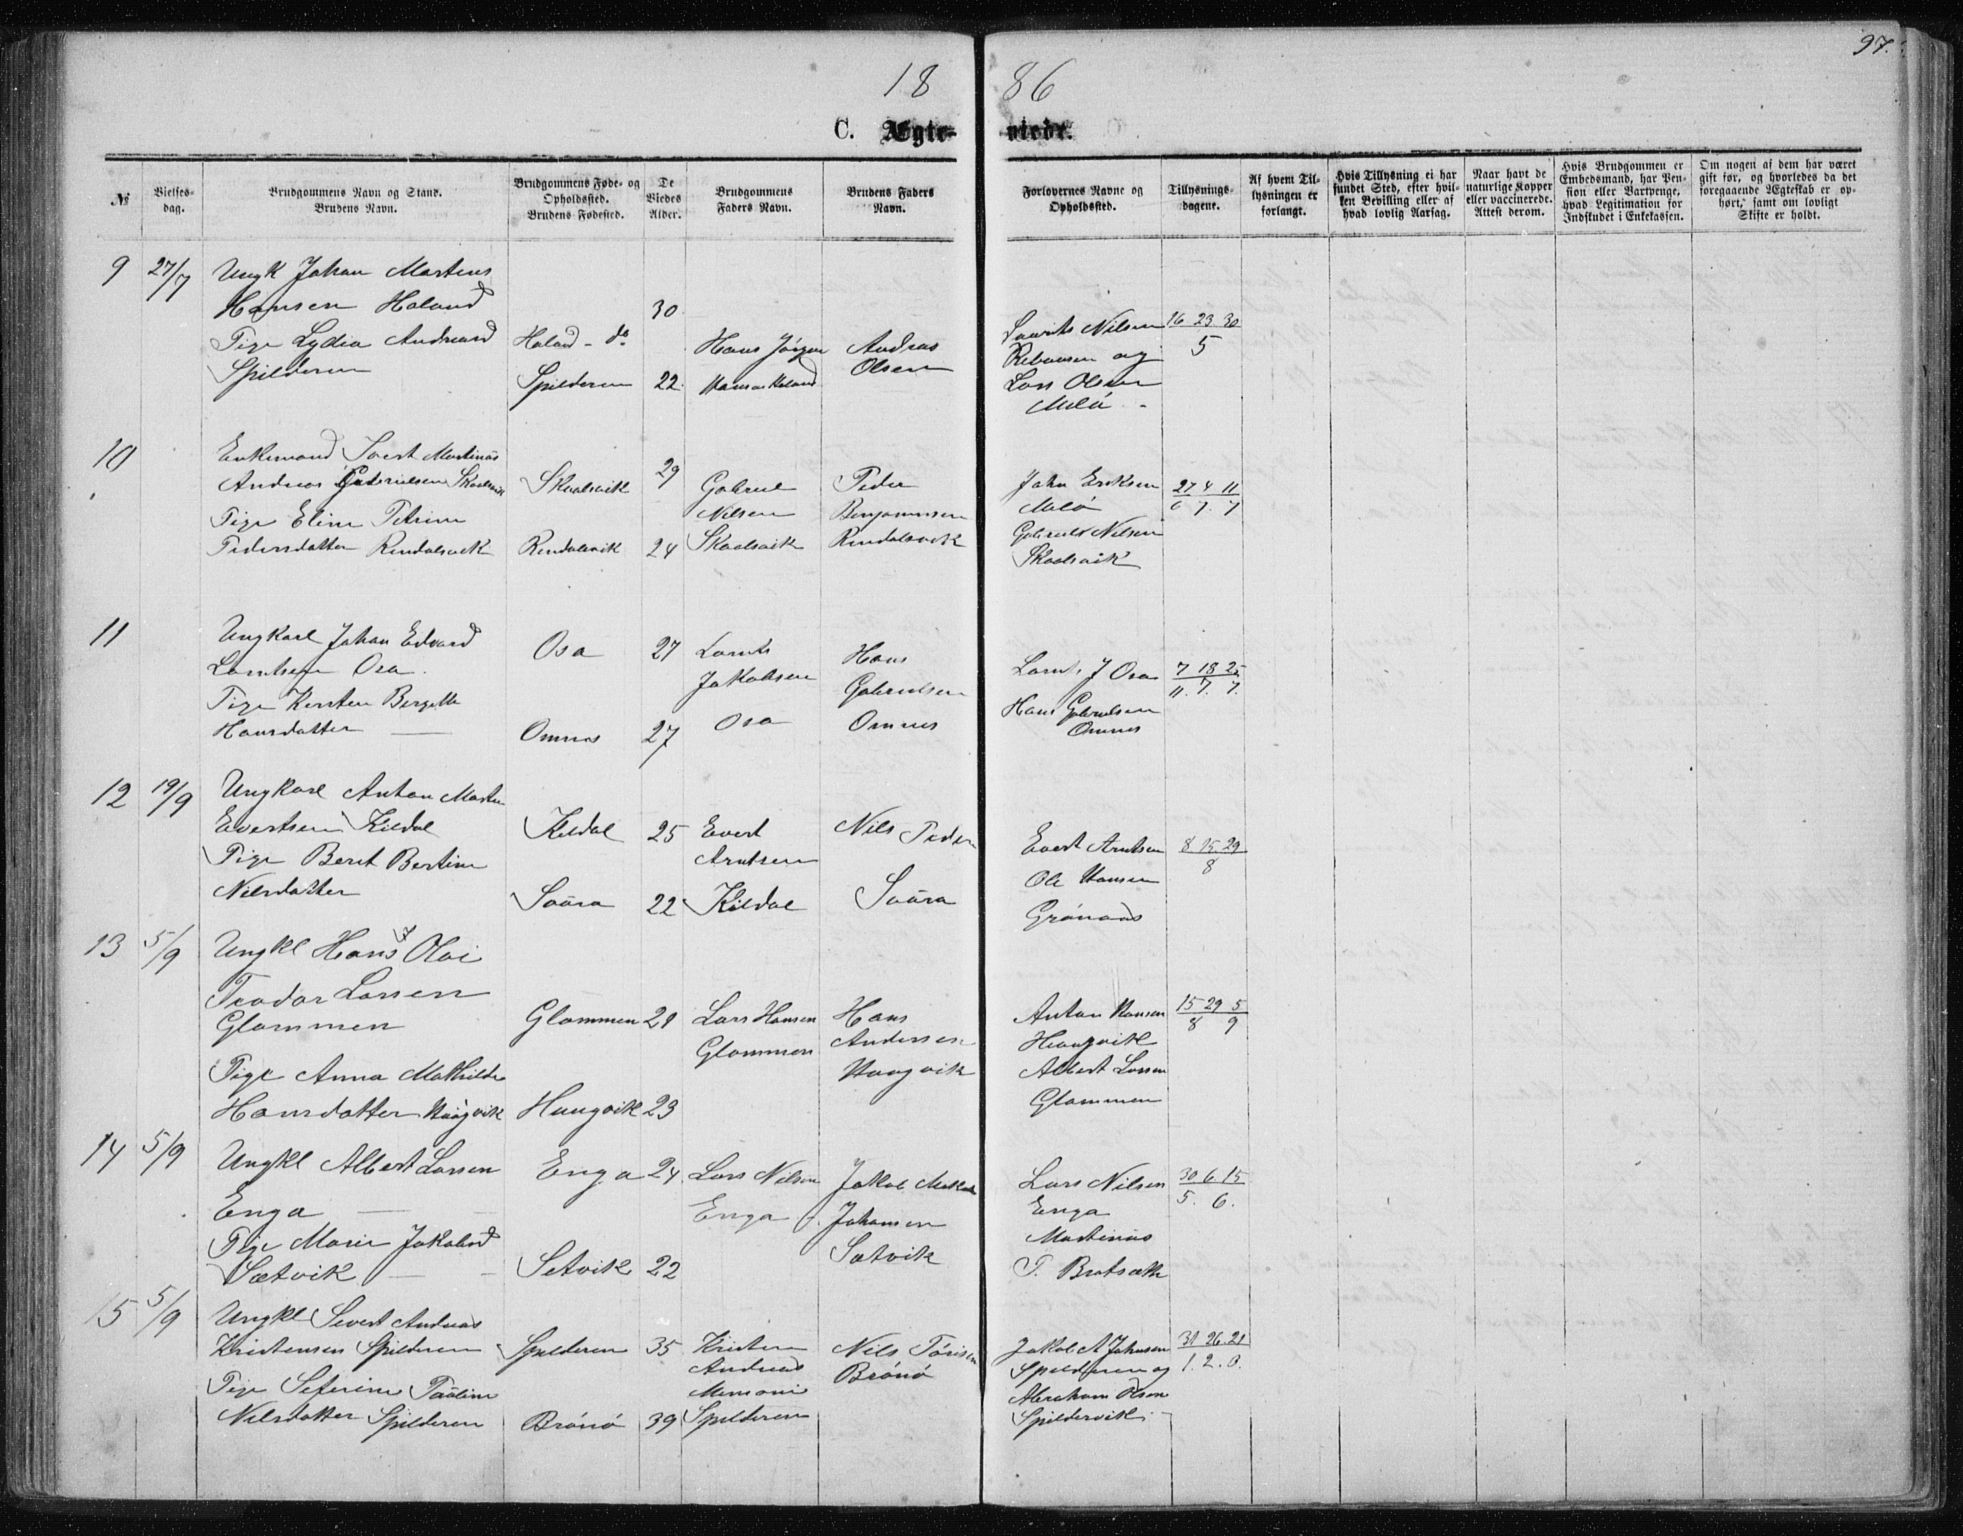 97.
18 86
C. Ægte- viede.
№
Vielses-
dag.
Brudgommens Navn og Stand.
Brudens Navn.
Brudgommens Føde- og
Opholdssted.
Brudens Fødested.
De
Viedes
Alder.
Brudgommens
Faders Navn.
Brudens Faders
Navn.
Forlovernes Navne og
Opholdssted.
Tillysnings-
dagene.
Af hvem Til-
lysningen er
forlangt.
Hvis Tillysning ei har
fundet Sted, efter hvil-
ken Bevilling eller af
hvad lovlig Aarsag.
Naar havt de
naturlige Kopper
eller vaccinerede.
Attest derom.
Hvis Brudgommen er
Embedsmand, har Pen-
sion eller Vartpenge,
hvad Legitimation for
Indskudet i Enkekassen.
Om nogen af dem har været
gift før, og hvorledes da det
foregaaende Ægteskab er op-
hørt, samt om lovligt
Skifte er holdt.
9
27/7
Ungk Johan Martens
Hansen Haland
Pige Lydia Andreasd
Spilderen
Haland - do
Spilderen
30
22
Hans Jørgen
Hansen Haland
Andreas
Olsen
Laurits Nilsen
og
Lars Olsen
Melö
16 23 30
5
10
Enkemand Sivert Martinus
Andreas Gabrielsen Skaalsvik
Pige Eline Petrine
Pedersdatter Rendalsvik
Skaalsvik
Rendalsvik
29
24
Gabriel
Nilsen
Skaalsvik
Peder
Benjaminsen
Rendalsvik
John Eriksen
Melö
Gabriel Nilsen
Skaalsvik
27 4 11
6 7. 7
11
Ungkarl Johan Edvard
Lorntsen Osa
Pige Kirsten Bergitte
Hansdatter
Osa
Omnes
27
27
Lornts
Jakobsen
Osa
Hans
Gabrielsen
Omnes
Lornts J Osa
Hans Gabrielsen
Omnes
7 18 25
11. 7. 7.
12
19/9
Ungkarl Anton Martin
Evertsen Kildal
Pige Berit Bertine
Nilsdatter
Kildal
Saura
25
22
Evert
Arntsen
Kildal
Nils Peder
Saura
Evert Arntsen
Ole Hansen
Grönaas
8 15 29
8
13
5/9
Ungkl Hans Olai
Teodor Larsen
Glommen
Pige Anna Mathilde
Hansdatter Haugvik
Glommen
Haugvik
21
23
Lars Hansen
Glommen
Hans
Andersen
Haugvik
Anton Hansen
Haugvik
Albert Larsen
Glommen
15 29 5
8 9
14
5/9
Ungkl Albert Larsen
Enga
Pige Marie Jakobsd
Sætvik
Enga
Setvik
24
22
Lars Nilsen
Enga
Jakob
Johansen
Sætvik
Lars Nilsen
Enga
Martinus
P. Bratsæth
30 6 15
5. 6.
15
5/9
Ungkl Sivert Andreas
Kristensen Spilderen
Pige Seferine Pauline
Nilsdatter Spilderen
Spilderen
Brönö
35
39
Kristen
Andreas
Spilderen
Nils
Brönö
Jakob A Johnsen
Spilderen og
Abraham Olsen
Spildervik
31 26 21
1. 2. 0.